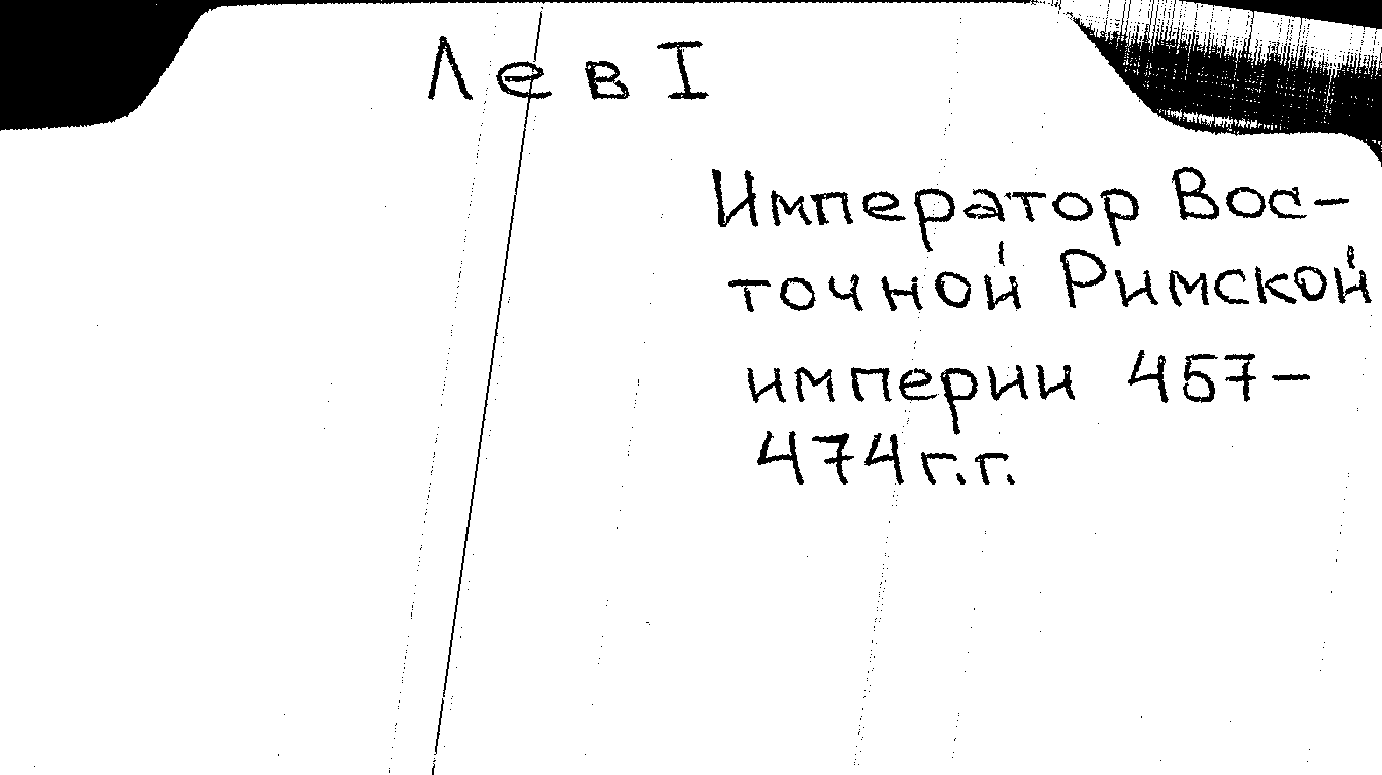 Лев I
Император Вос-
точной Римской
империи 457-
474г.г.